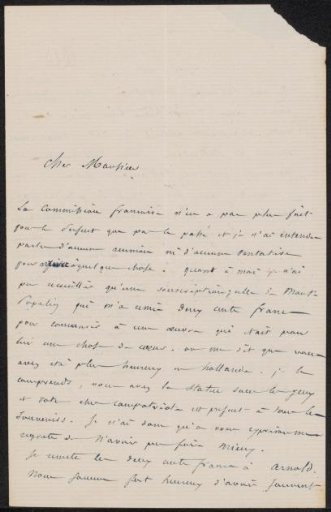 Cher Monsieur
La Commission française n'en a pas plus fait
pour le que par le passé et je n'ai entendu
parler d'aucune réunion ni d'aucune tentative
pour quelque chose : quant à moi je n'ai
pu recueillir qu'une souscription, celle de
qui m'a remis deux cents francs
pour concourir à une œuvre qui était pour
lui une chose de cœur. on me dit que vous
avez été plus heureux en Hollande. je le
comprends, vous avez la statue sous les yeux
et votre cher compatriote est présent à tous les
souvenirs. Je n'ai donc qu'à vous exprimer mes
regrets de n'avoir pu faire mieux.
Je remets les deux cents francs à Arnold.
Nous sommes fort heureux d'avoir souvent